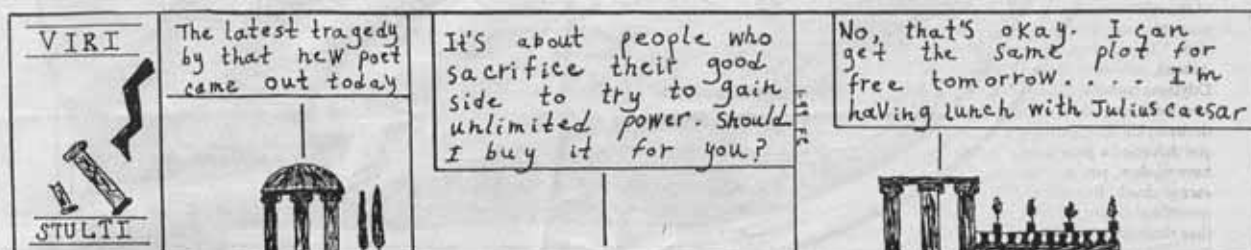 VIRI
STULTI
The latest tragedy
by that new poet
came out today
It's about people who
sacrifice their good
side to try to gain
unlimited power. Should
I buy it for you?
No, that's okay. I can
get the same plot for
free tomorrow.... I'm
having lunch with Julius Caesar